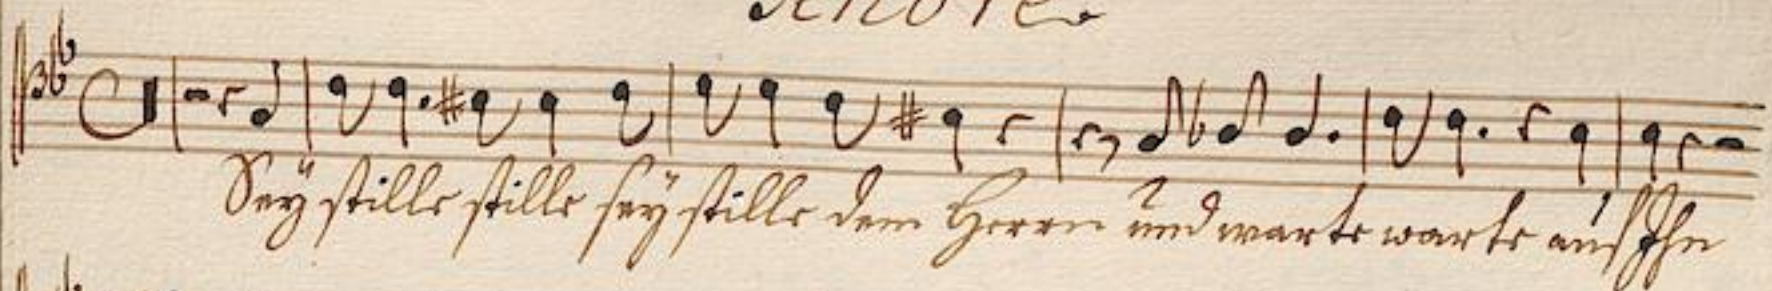 Tenore
Seÿ stille stille seÿ stille dem Herrn und warte warte auf Ihn